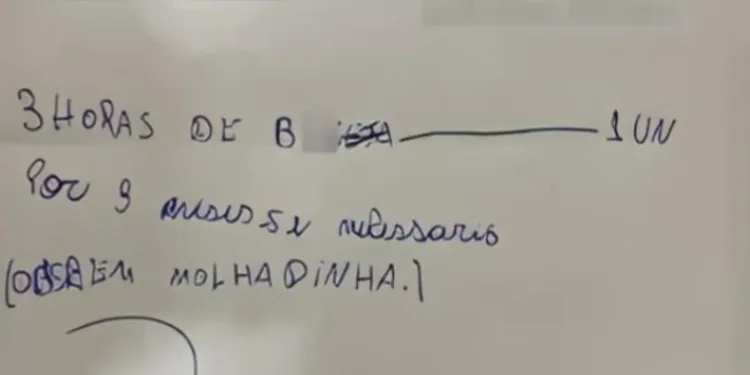 3 HORAS DE B 1 UN
Por 9 meses se necessario
(OBS BEM MOLHADINHA.)